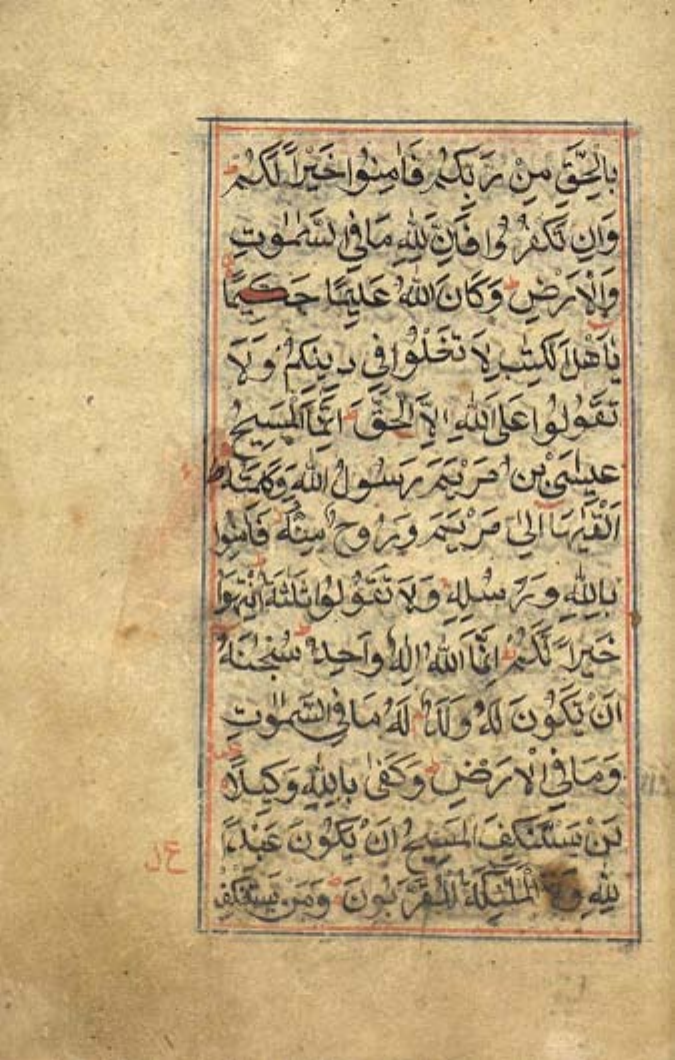 بِالْحَقِّ مِنْ رَبِّكُمْ فَاٰمِنُوا خَيْرًا لَكُمْ ط
وَاِنْ تَكْفُرُوا فَاِنَّ لِلّٰهِ مَا فِي السَّمٰوٰتِ
وَالْاَرْضِ ط وَكَانَ اللّٰهُ عَلِيمًا حَكِيمًا
يٰاَهْلَ الْكِتٰبِ لَا تَغْلُوا فِي دِينِكُمْ وَلَا
تَقُولُوا عَلَى اللّٰهِ اِلَّا الْحَقَّ ط اِنَّمَا الْمَسِيحُ
عِيسَى بْنُ مَرْيَمَ رَسُولُ اللّٰهِ وَكَلِمَتُهُ ط
اَلْقٰيهَا اِلٰى مَرْيَمَ وَرُوحٌ مِنْهُ فَاٰمِنُوا
بِاللّٰهِ وَرُسُلِهِ وَلَا تَقُولُوا ثَلٰثَةٌ اِنْتَهُوا
خَيْرًا لَكُمْ ط اِنَّمَا اللّٰهُ اِلٰهٌ وَاحِدٌ ط سُبْحٰنَهُ
اَنْ يَكُونَ لَهُ وَلَدٌ م لَهُ مَا فِي السَّمٰوٰتِ
وَمَا فِي الْاَرْضِ ط وَكَفٰى بِاللّٰهِ وَكِيلًا
لَنْ يَسْتَنْكِفَ الْمَسِيحُ اَنْ يَكُونَ عَبْدًا
لِلّٰهِ وَلَا الْمَلٰئِكَةُ الْمُقَرَّبُونَ ط وَمَنْ يَسْتَنْكِفْ